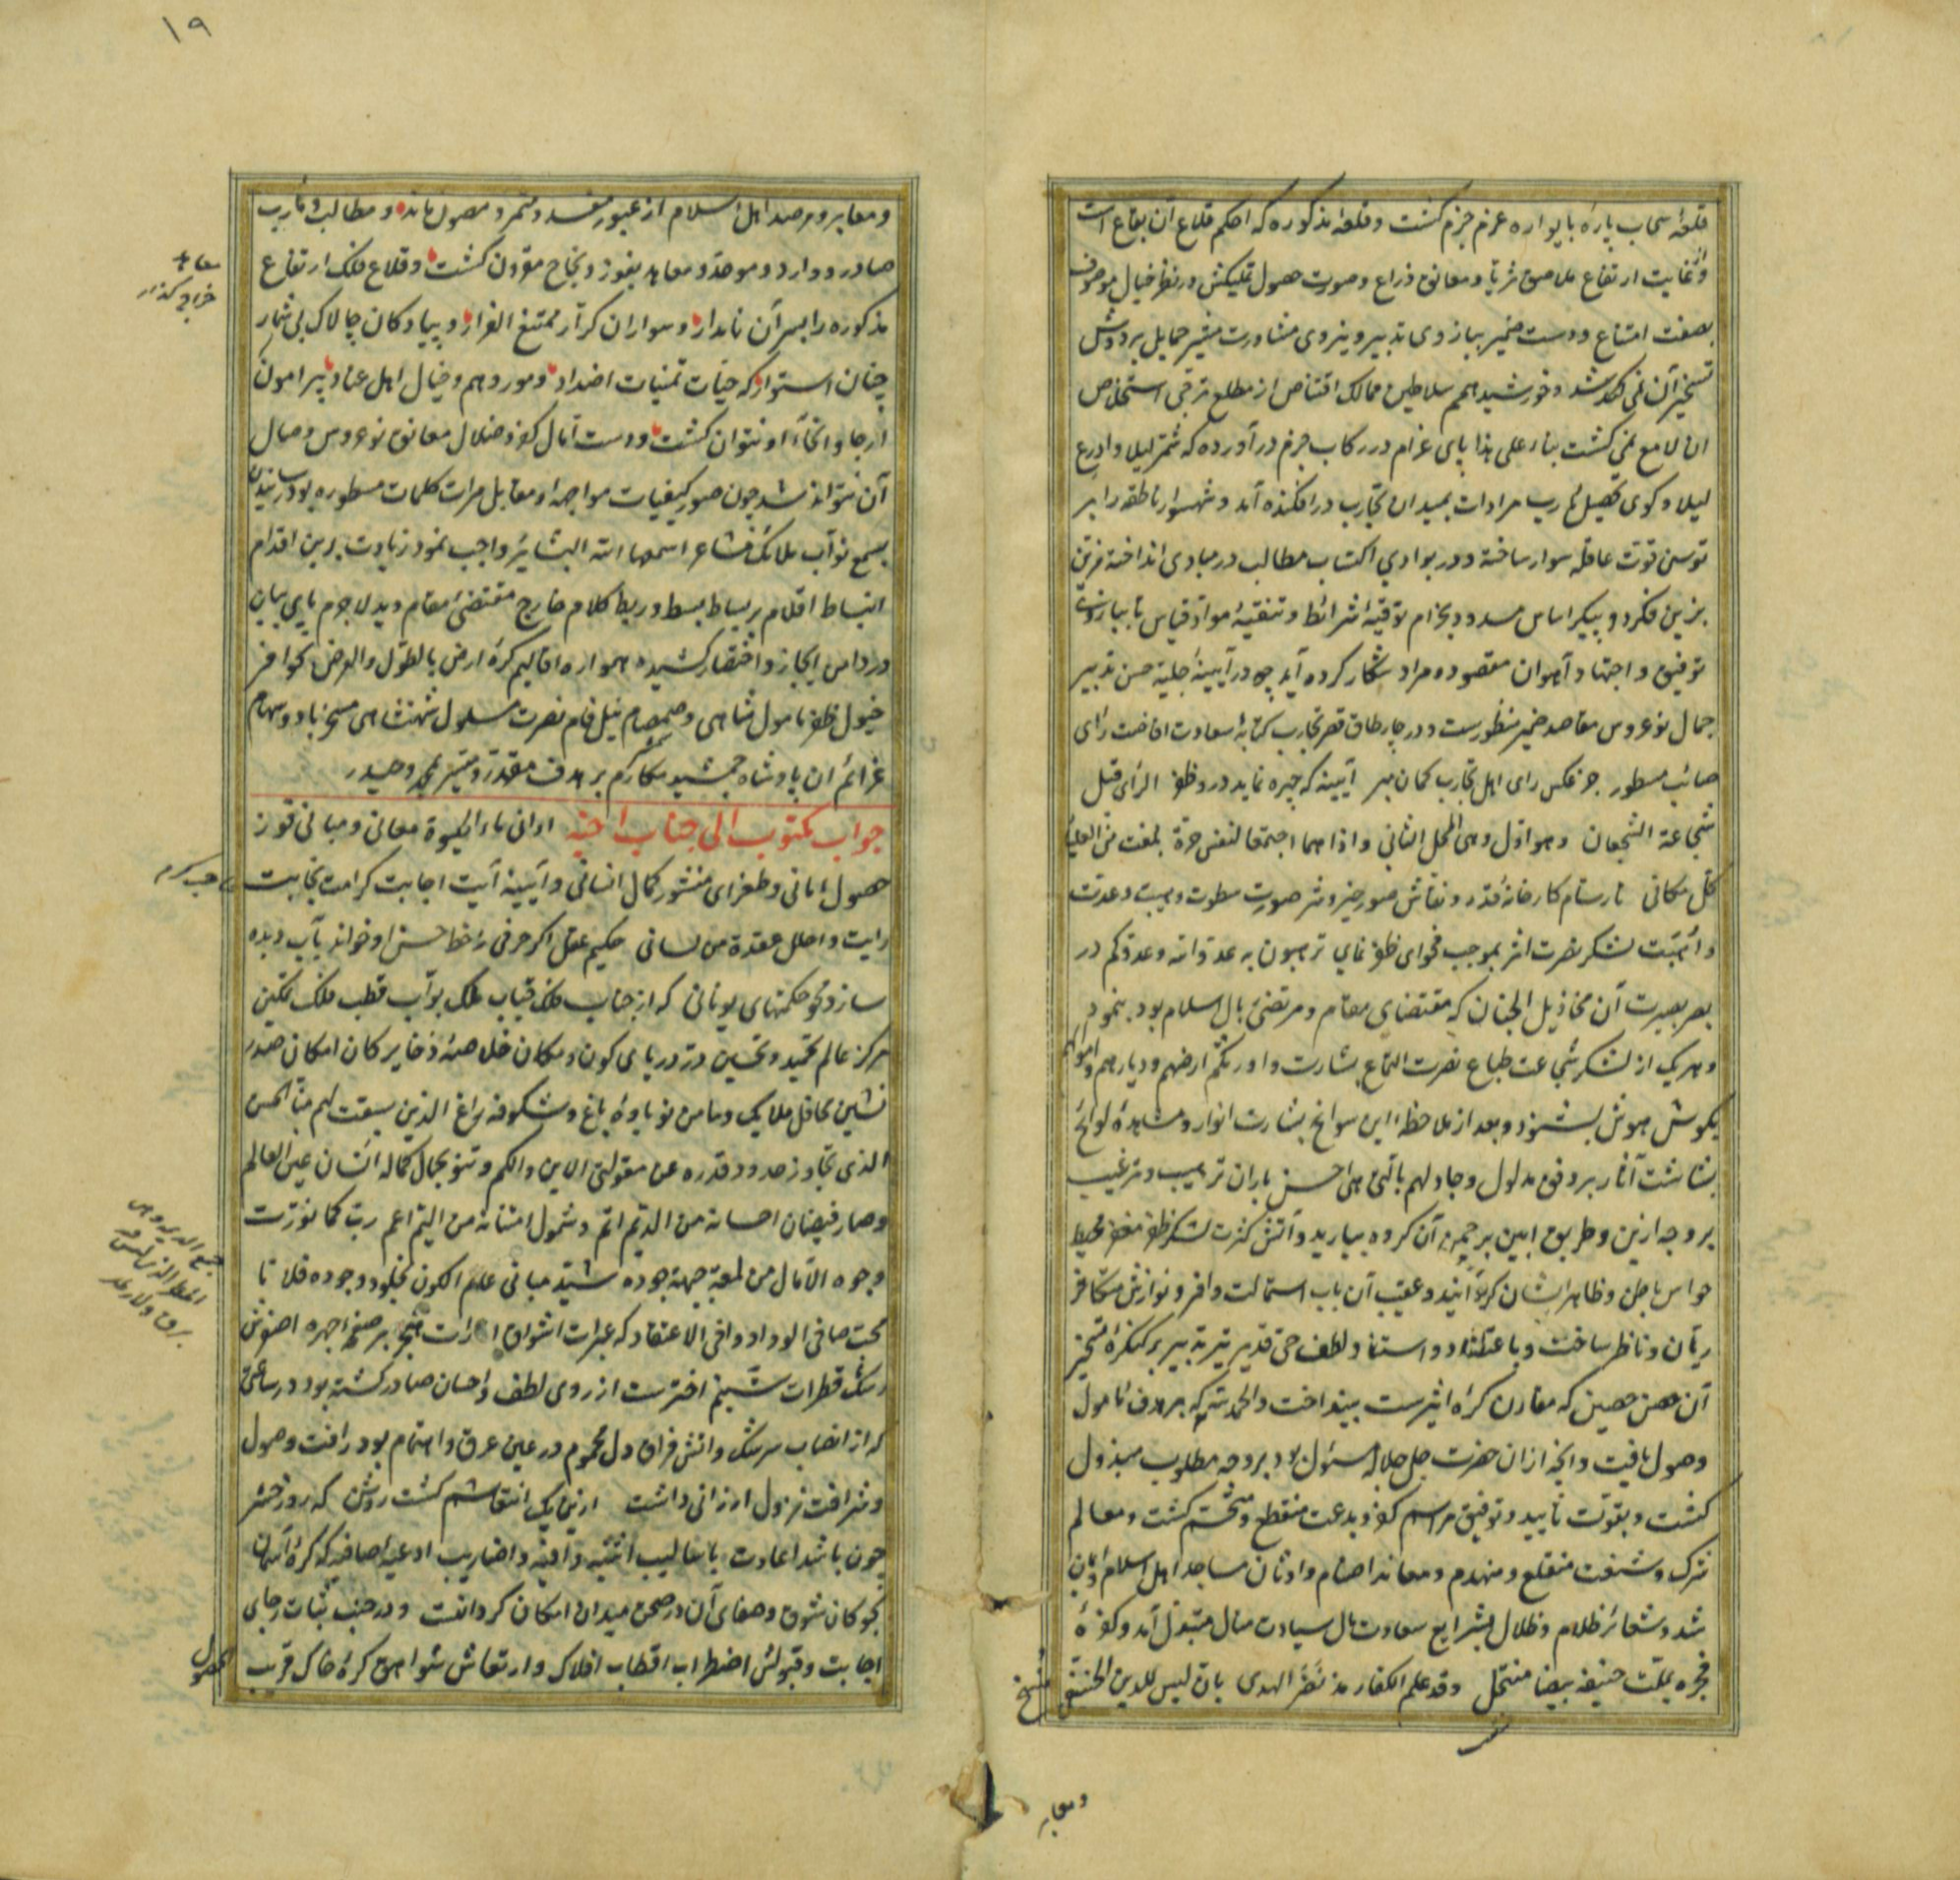 ۱۹
قلعهٔ سحاب پاره با یواره عزم جزم کشت و قلعهٔ مذکوره که احکم قلاع آن بقاع است
و از غایت ارتفاع ملاصق ثریا و معانق ذراع و صورت حصول تملیکش در نظر خیال موصوف
بصفت امتناع و دست ضمیر ببازوی تدبیر و نیروی مشاورت شمشیر حمایل بر دوش
تسخیر آن نمی شد و خورشید همم سلاطین ممالک اقتناص از مطلع ترقی استخلاص
ان لامع نمی کشت بناء علی هذا پای عزام در رکاب جزم در آورده که شمر لیلا و ادرع
لیلا و کوی تحصیل مآرب مرادات بمیدان تجارب در افکنده آمد و شهسوار ناطقه را بر
توسن قوت عاقله سوار ساخته و در بوادی اکتساب مطالب در مبادی انداخته مزین
بزین فکر و پیکر اساس مسدد بحزام توقیهٔ شرائط و تنقیهٔ مواد قیاس تا ببازوی
توفیق و اجتهاد آهوان مقصود و مراد شکار کرده آید چه در آیینهٔ جلیهٔ حسن تدبیر
جمال نوعروس مقاصد ضمیر منظورست و در چارطاق قصر تجارب کتابهٔ سعادت افاضت رای
صائب مسطور جز عکس رای اهل تجارب کمان مبر آیینه که چهره نماید درو ظفر الرای قبل
شجاعة الشجعان وهو اول وهی المحل الثانی واذا هما اجتمعا لنفس حرة بلغت من العلیاء
کل مکانی تا رسام کارخانهٔ قدر و نقاش صور خیر و شر صورت سطوت و هیبت و عدت
و اُهبت لشکر نصرت اثر بموجب فحوای ظفر نمای ترهبون به عدو الله وعدوکم در
بصر بصیرت آن مخاذیل الجنان که مقتضای مقام و مرتضیٔ بال اسلام بود بنمود
و هر یک از لشکر شجاعت طباع نصرت التماع بشارت و اورثکم ارضهم و دیارهم و اموالهم
بکوش هوش بشنود و بعد از ملاحظهٔ این سوانح بشارت انوار و مشاهدهٔ لوائح
بشاشت آثار بر وفق مدلول و جادلهم بالتی هی احسن باران ترهیب و ترغیب
بر وجه ازین و طریق ابین بر چمن آن کروه ببارید و آتش کثرت لشکر ظفر مغفر محیط
حواس باطن و ظاهر ایشان کردانید و عقیب آن باب استمالت وافر و نوازش متکافر
ریان و ناظر ساخت و باعتضاد و استناد لطف حق قدیر تیر تدبیر بر کنکرهٔ تسخیر
آن حصن حصین که مقارن کرهٔ اثیرست بینداخت والحمد لله که بر هدف مامول
وصول یافت و آنچه ازان حضرت جل جلاله مسئول بود بر وجه مطلوب مبذول
کشت و بقوت تایید و توفیق مراسم کفر و بدعت منقطع و منحسم کشت و معالم
شرک و شنعت منقلع و منهدم و معابد اصنام و اوثان مساجد اهل اسلام و ایمان
شد و شعائر ظلام و ظلال بشرایع سعادت مآل سیادت منال متبدل آمد و کفرهٔ
فجره بملت حنیفه بیضا منتحل وقد علم الکفار مذ نصر الهدی بان لیس للدین الحنیفی
منسخ
و معابر
و معابر و مرصد اهل اسلام از عبور مفسد و متمرد مصون ماند و مطالب و مآرب
صادر و وارد و موحد و معاهد بفوز و نجاح مقرون کشت و قلاع فلک ارتفاع
مذکوره را بسرآن نامدار و سواران کرار ممتنع الفرار و پیادکان چالاک بی شمار
چنان استوار که حیات تمنیات اضداد و مور وهم و خیال اهل عناد پیرامون
ارجا و انحاء او نتوان کشت و دست آمال کفر و ضلال معانق نوعروس وصال
آن نتواند شد چون صور کیفیات مواجهه او مقابل مرات کلمات مسطوره بود رسانیدن
بسمع نواب ملائک مشاعر اسمعها الله البشائر واجب نمود زیادت برین اقدام
انبساط اقلام بر بساط بسط و ربط کلام خارج مقتضیٔ مقام دید لاجرم پای بیان
در دامن ایجاز و اختصار کشید همواره اقالیم کرهٔ ارض بالطول والعرض بحوافر
خیول ظفر مامول شاهی و صمصام نیل فام نصرت مسلول شهنشاهی مسخر باد و سهام
عزائم ان پادشاه جمشید مکارم بر هدف مقدرت و میسر بمحمد و حیدر
جواب مکتوب الی جناب اخیه اوانی ماء الحیوة معانی و مبانی قوز
حصول امانی و طغرای منشور کمال انسانی و آیینه آیت اجابت کرامت نجابت
رایت واحلل عقدة من لسانی حکیم عقل اکر حرفی ز خط حسن او خواند بآب دیده
سازد محو حکمتهای یونانی که از جناب ملک قباب فلک بواب قطب فلک تمکین
مرکز عالم تمجید و تحسین در دریای کون و مکان خلاصهٔ ذخایر کان امکان صدر
نشین محافل ملایک و سامن نوباوهٔ باغ و شکوفه راغ الذین سبقت لهم منا الحسنی
الذی تجاوز صدود قدره عن مقولتی الاین والکم وتنور بجمال کماله انسان عین العالم
وصار فیضان احسانه من الدیم اتم وشمول امتنانه من الیم اعم رب کما نورت
وجوه الآمال من لمعة جبهة جوده شید مبانی علم الکون بخلود وجوده فلا تا
محب صافی الوداد وافی الاعتقاد که عبرات اشواق بر صفحه اجهره اصفرش
رشک قطرات شبنم اخترست از روی لطف و احسان صادر کشته بود در ساعتی
که از انصاب سرشک و آتش فراق دل محموم در عین عرق و اهتمام بود رافت وصول
و شرافت نزول ارزانی داشت ازین یک انتعاشم کشت روشن که روز حشر
چون باشد اعادت باسالیب اثنیه وافیه و اضاریب ادعیه صافیه که کرهٔ آسمان
کجوکان شوق و صفای آن در صحن میدان امکان کردانست و در جنب ثبات رجای
اجابت و قبولش اضطراب اقطاب افلاک و ارتعاش شواهق کرهٔ خاک قریب
الحصول